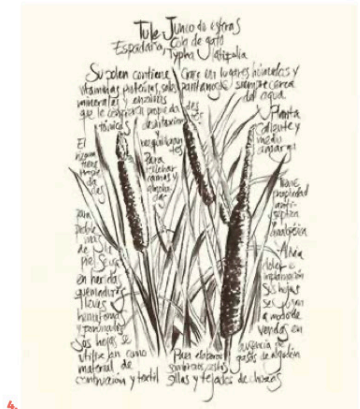 Tule Junco de esteras
Espadaña, Cola de gato
Typha latifolia
Su polen contiene
vitaminas, proteínas, sales
minerales y enzimas
que le confieren propiedades
tónicas
Crece en lugares húmedos y
pantanosos siempre cerca
del agua.
Planta
caliente y
medio
amarga
El
para
rellenar
camas y
almohadas
tiene
propiedad
antiséptica
y
analgésica
Alivia
dolor e
inflamación
Sus hojas
se usan
a modo de
vendas en
ausencia de
gasas de algodón
para
de la
piel. Se usa
en heridas,
quemaduras,
llagas,
hematomas
Sus hojas se
utilizan como
material de
construcción y textil
Para elaborar
sombreros, cestas
sillas y tejados de chozas